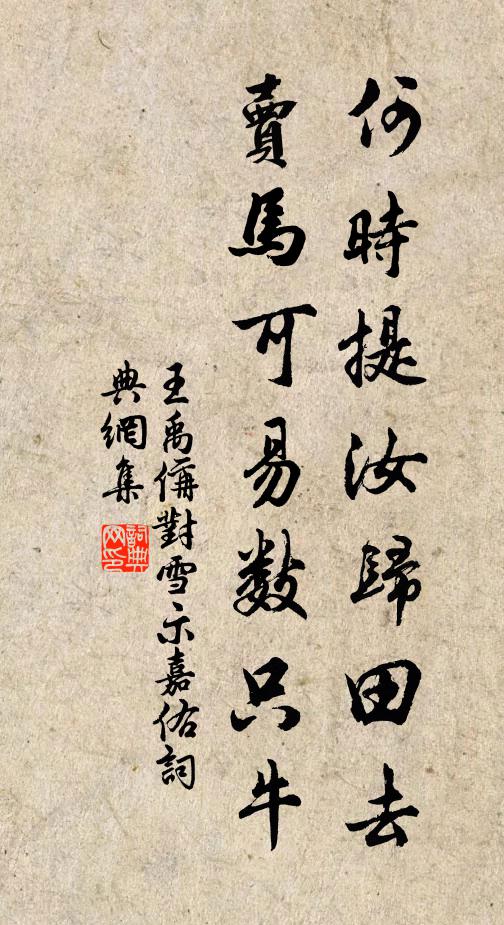 何時提汝歸田去
賣馬可易數只牛
王禹偁對雪示嘉佑詞
典網集
詞典網印